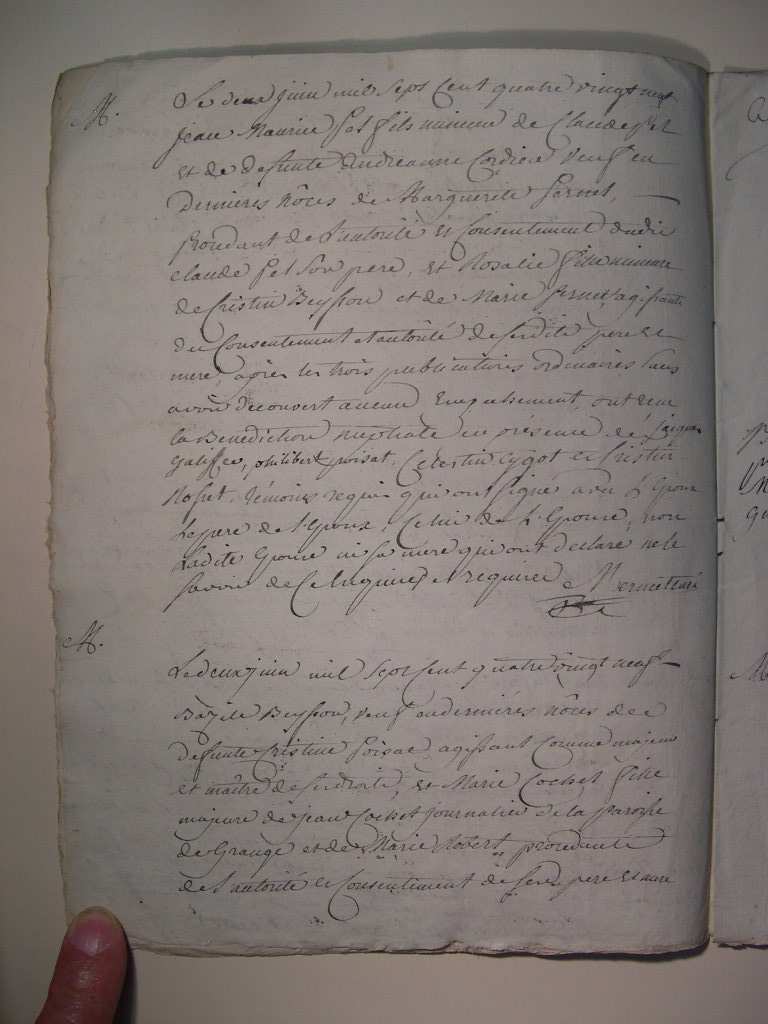 M.
Le deux juin mil sept cent quatre vingt neuf
jean Maurice fils mineur de Claude
et de defunte andreanne Cordier veuf en
Dernieres nôces de Marguerite
procedant de l'autorité et Consentement dudit
claude son pere, et Rosalie fille mineure
de Cristin Beysson et de Marie agissante
du Consentement et autorité de sesdits pere et
mere, après les trois publications ordinaires sans
avoir decouvert aucun Empechement, ont reçu
la Benediction nuptiale en présence de jacques
philibert poisat, Celestin Cygot et Cristin
Rosset, témoins requis qui ont signé avec l'Epoux
Le pere de l'Epoux, Celui de L'Epouse, non
Ladite Epouse ni sa mere qui ont declaré ne le
savoir de Ce Enquises et requises
M.
Le deux juin mil sept Cent quatre vingt neuf
Bazile Beysson, veuf en dernières nôces de
defunte Cristine Poisat, agissant Comme majeur
et maître de ses droits, et Marie Cochet fille
majeure de jean Cochet journalier de la paroisse
de Grange et de Marie Robert procedante
de l'autorité et Consentement de sesd. pere et mere